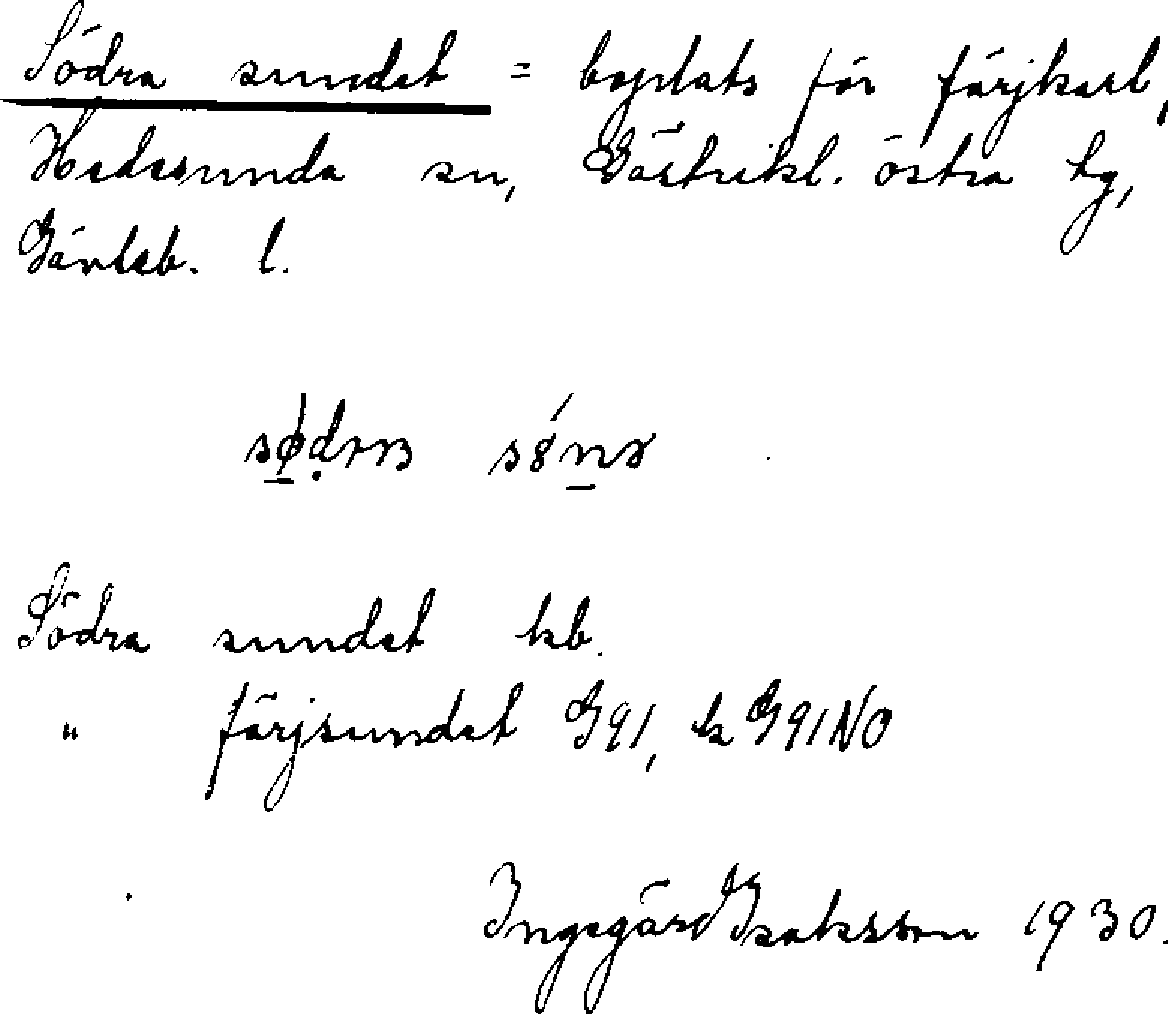 Södra sundet = boplats för färjkarl,
Hedesunda sn, Gästrikl. östra tg,
Gävleb. l.
Södra sundet kb.
" färjsundet G91, k G91NO
Ingegärd Isaksson 1930.